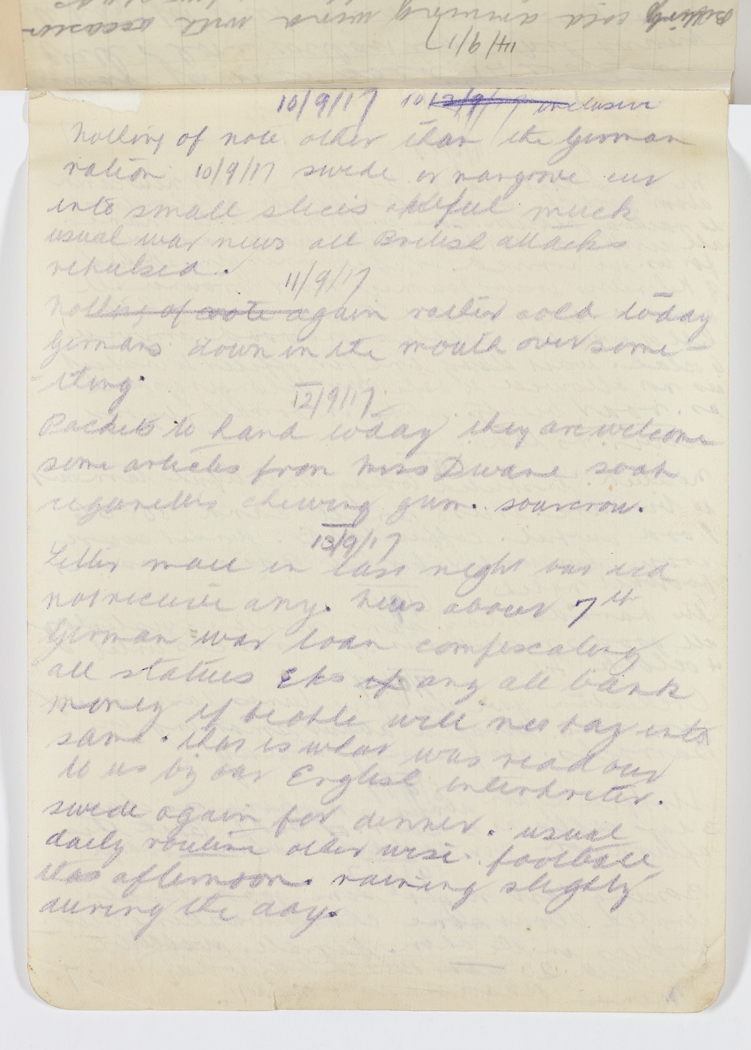 14/9/17
10/9/17 10 13/9/17 inclusive
Nothing of note other than the German
ration 10/9/17 swede or mangrove cut
into small slices awful muck
usual war news all British attacks
repulsed.
11/9/17
Nothing of note again rather cold today
Germans down in the mouth over some-
-thing.
12/9/17
Packets to hand today they are welcome
some articles from Miss Dwane soap
cigarettes chewing gum.
13/9/17
Letter mail in last night but did
not receive any. News about 7th
German war loan compescating
all statues Etc if any all bank
money if people will not pay into
same. that is what was read out
to us by our English interpreter.
swede again for dinner. usual
daily routine other wise. football
this afternoon. raining slightly
during the day.